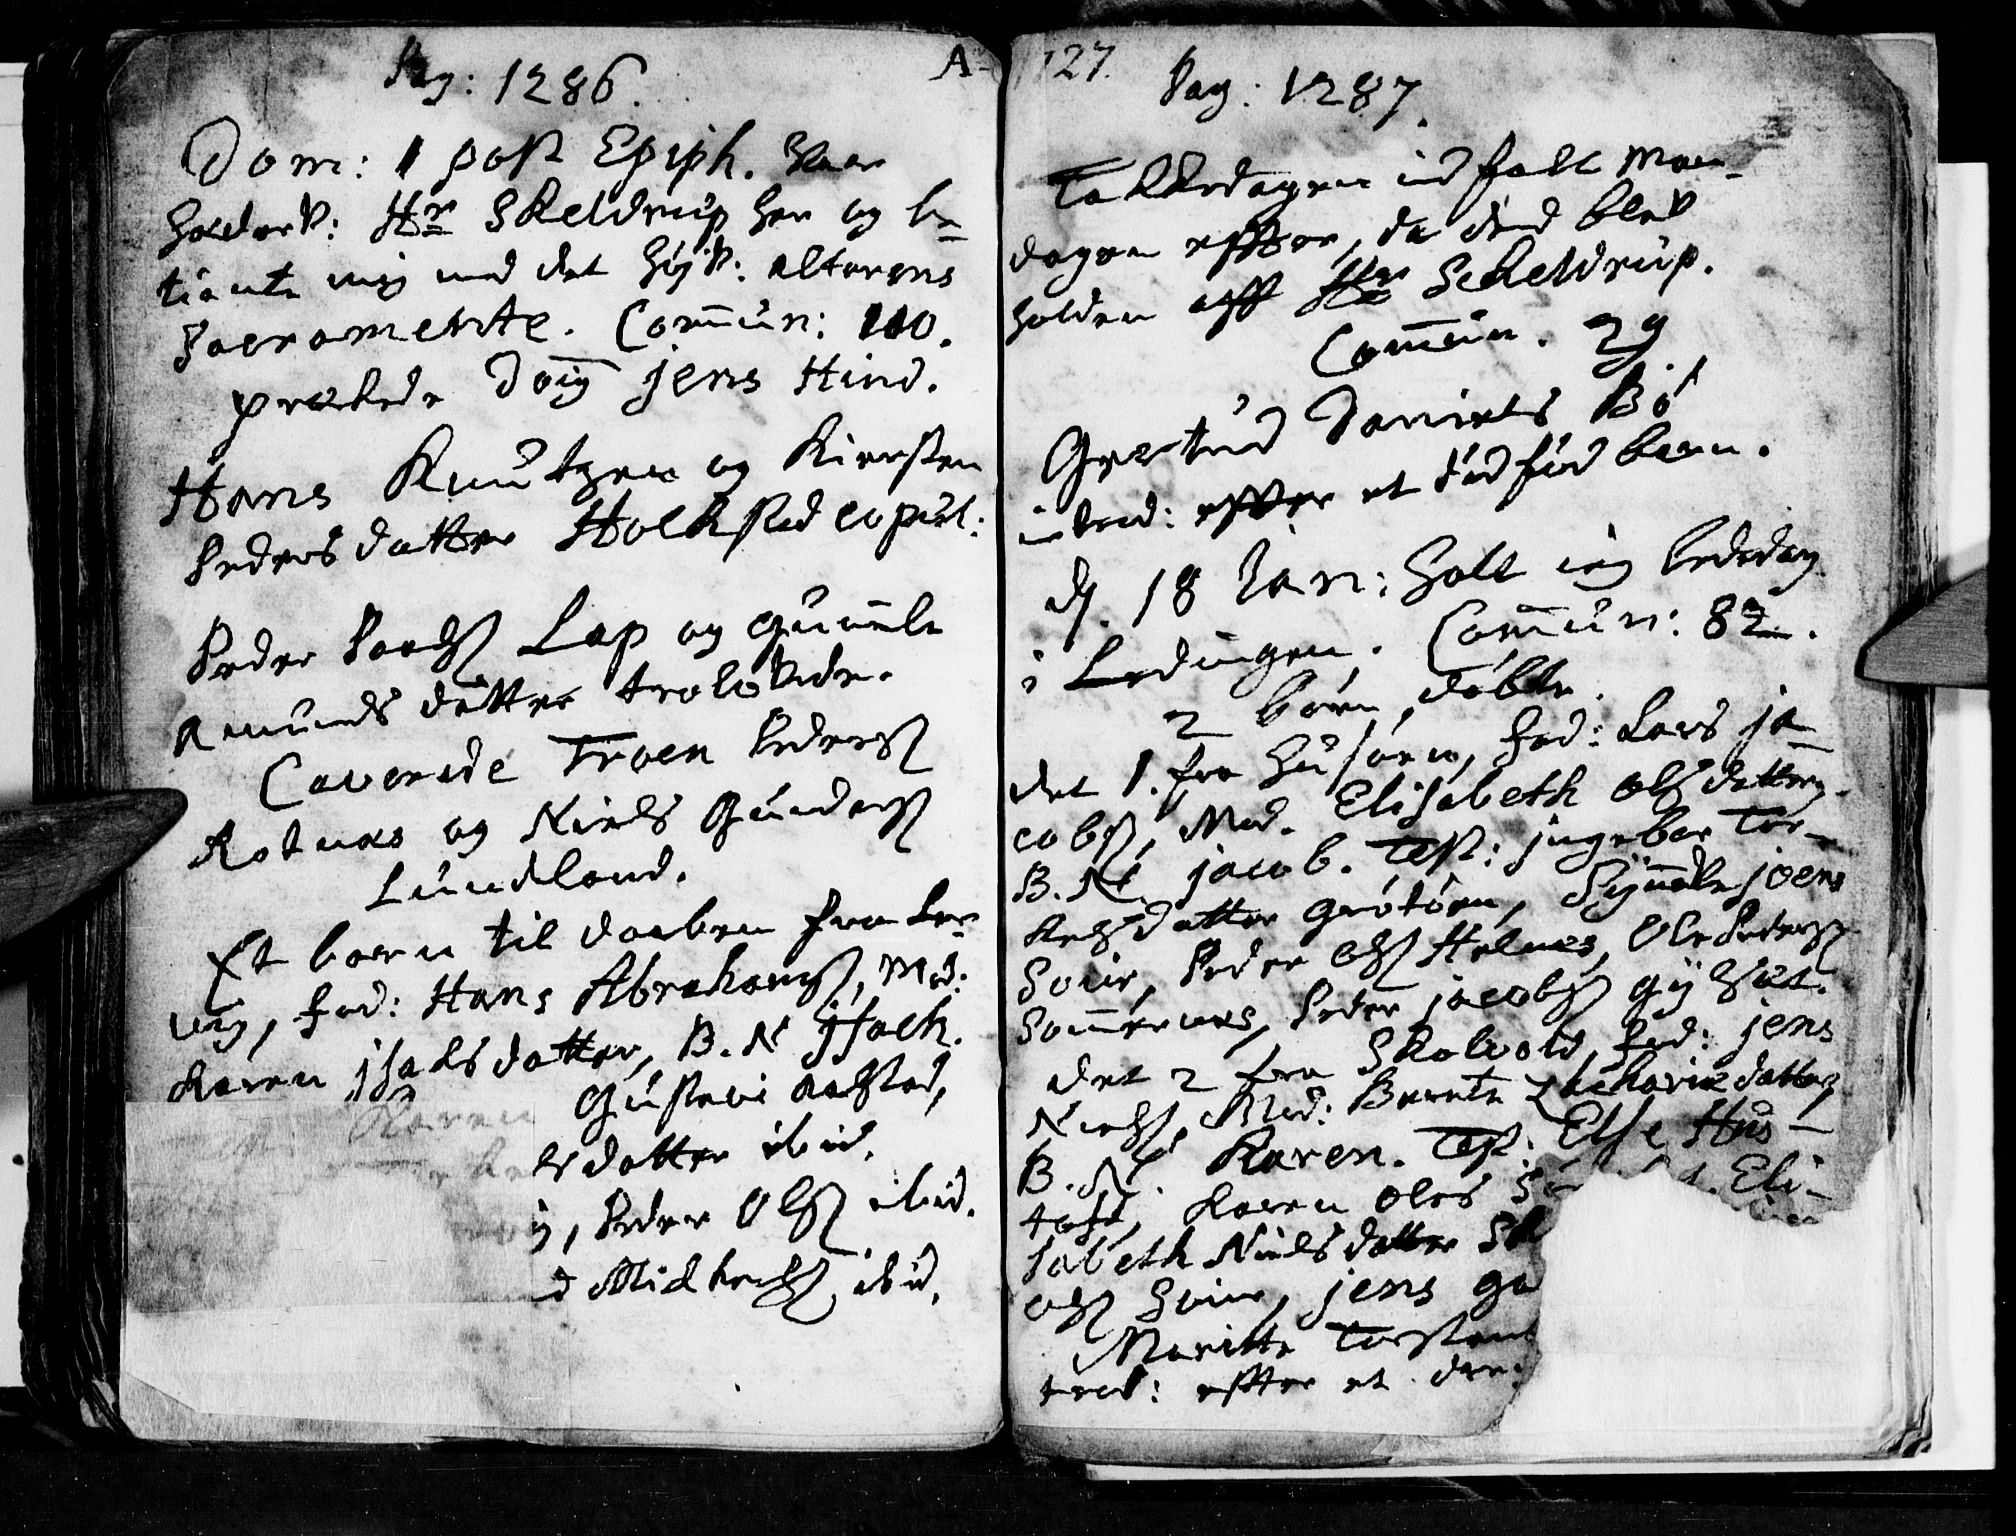 Pag: 1286.
A-
Dom: 1 post Epiph. var
Hæderv: Hr Skeldrup her og be=
tiente mig med det høyv: alterens
Sacramente. Com̄un: 110.
prækede Jens Hind.
Hans Knutzen og Kiersten
Pedersdatter Holkestad copul:
Peder Lap og Gunnele
Amunds datter trolovede.
Caverede Troen Pederss
Rotnes og Niels Gunderss
Lundland.
Et barn til daaben fra Ler=
vig, fad: Hans Abrahamss, Mod:
Karen Jsaksdatter, B. N Jsach.
Karen Gustavi
datter ibid.
Peder Olss ibid.
Michelss ibid.
127.
Pag: 1287.
Takkedagen ind falt Man-
dagen effter, da dend blev
holden aff Hr Scheldrup.
Com̄un. 29
Giertrud Daniels Bö
introd: effter et dödföd barn.
D. 18 Jan: holt ieg bededag
i Lödingen. Com̄un: 82.
2 börn döbte.
det 1. fra Husöen, fad: Lars Ja-
cobss, Mod. Elisabeth Olss datter,
B. N. Jacob. Test: Jngebor Tor-
kelss datter Grötöen, Synnele Joens
Peder Olss Helnes, Ole Pederss
Som̄ernes, Peder Jacobss
det 2 fra Skolvold, fad: Jens
Nielss, Mod: Berete Zacharie datter,
B. N. Karen. Test: Else Hus-
toft, Karen Oles Eli-
sabeth Nielsdatter
Olss Jens
Maritte Torstens
trod: effter et